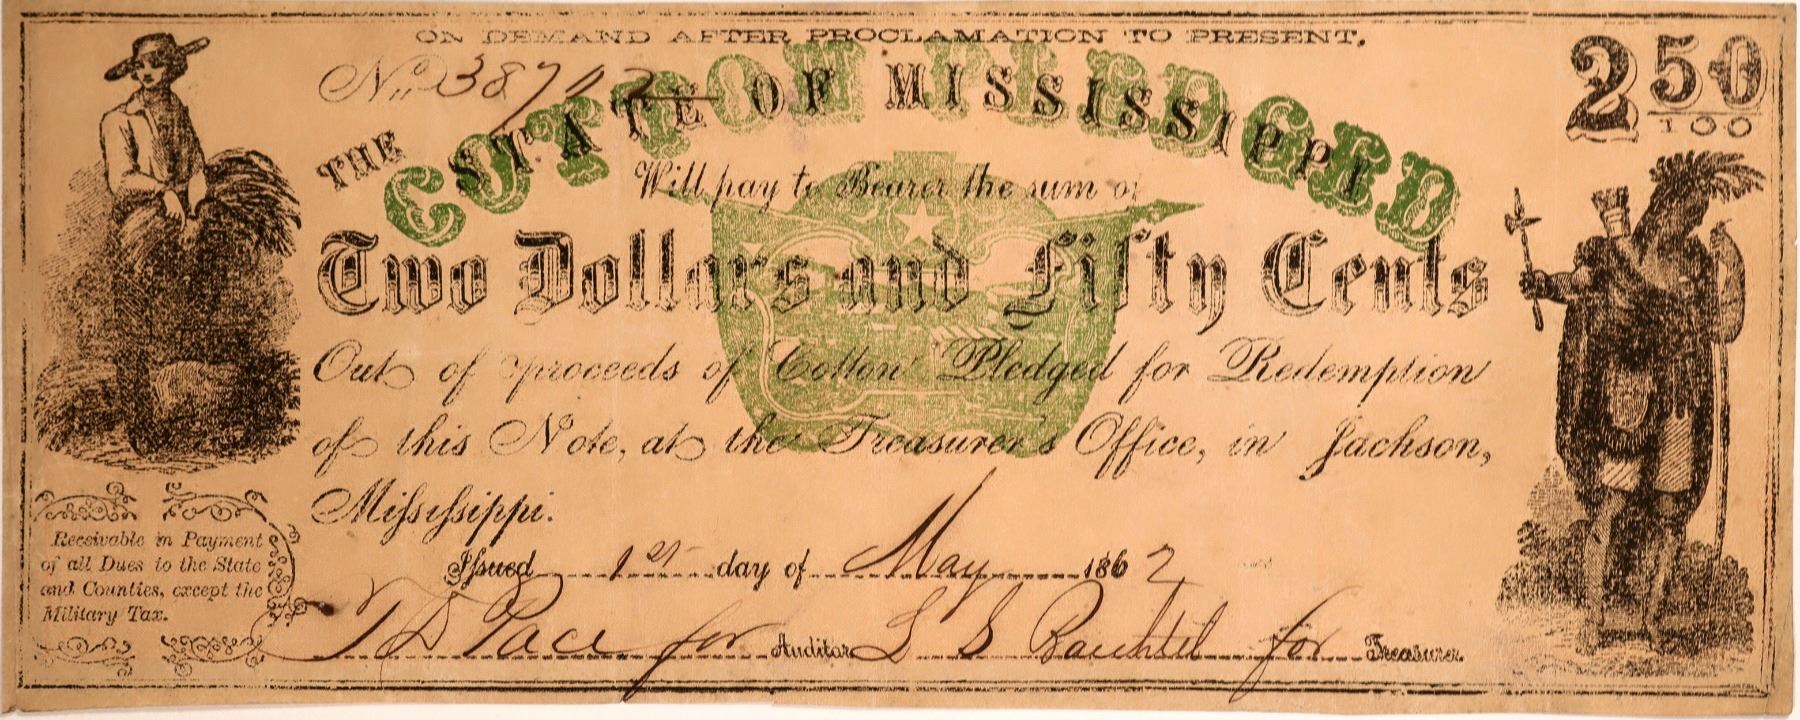 ON DEMAND AFTER PROCLAMATION TO PRESENT.
No. 38702
COTTON PLEDGED
THE STATE OF MISSISSIPPI
2 50/100
Will pay to Bearer the sum of
Two Dollars and Fifty Cents
Out of proceeds of Cotton Pledged for Redemption
of this Note, at the Treasurer's Office, in Jackson,
Mississippi.
Receivable in Payment
of all Dues to the State
and Counties, except the
Military Tax.
Issued 1st day of May 1862
for Auditor
for Treasurer